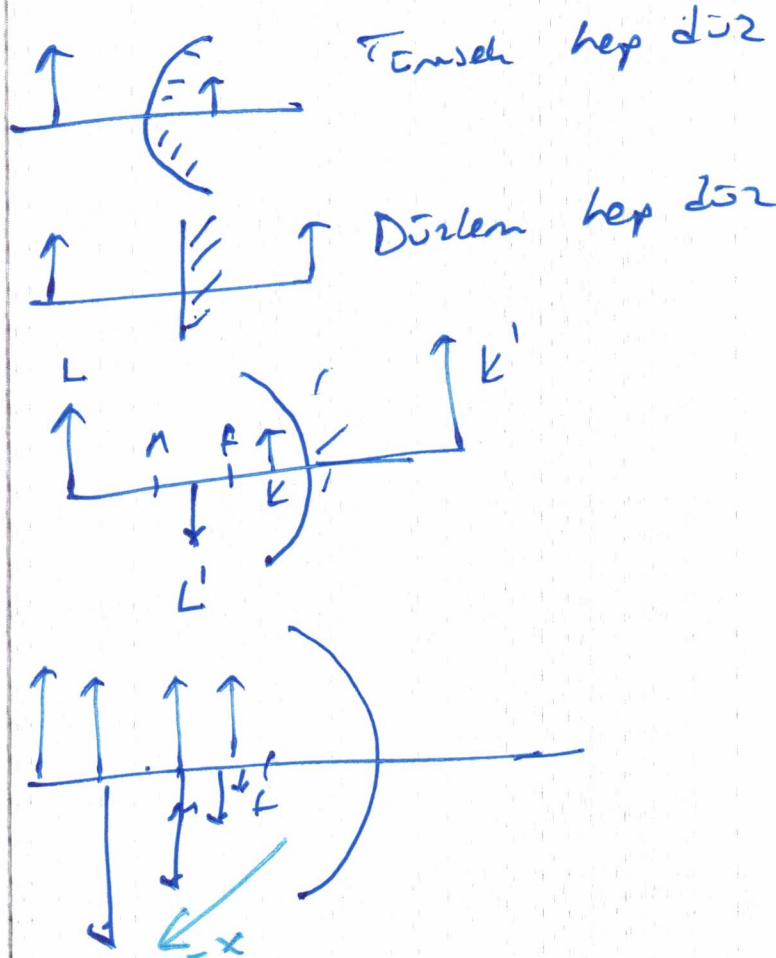 Tümsek hep düz
Düzlem hep düz
L
K'
M F
K
L'
M F
x